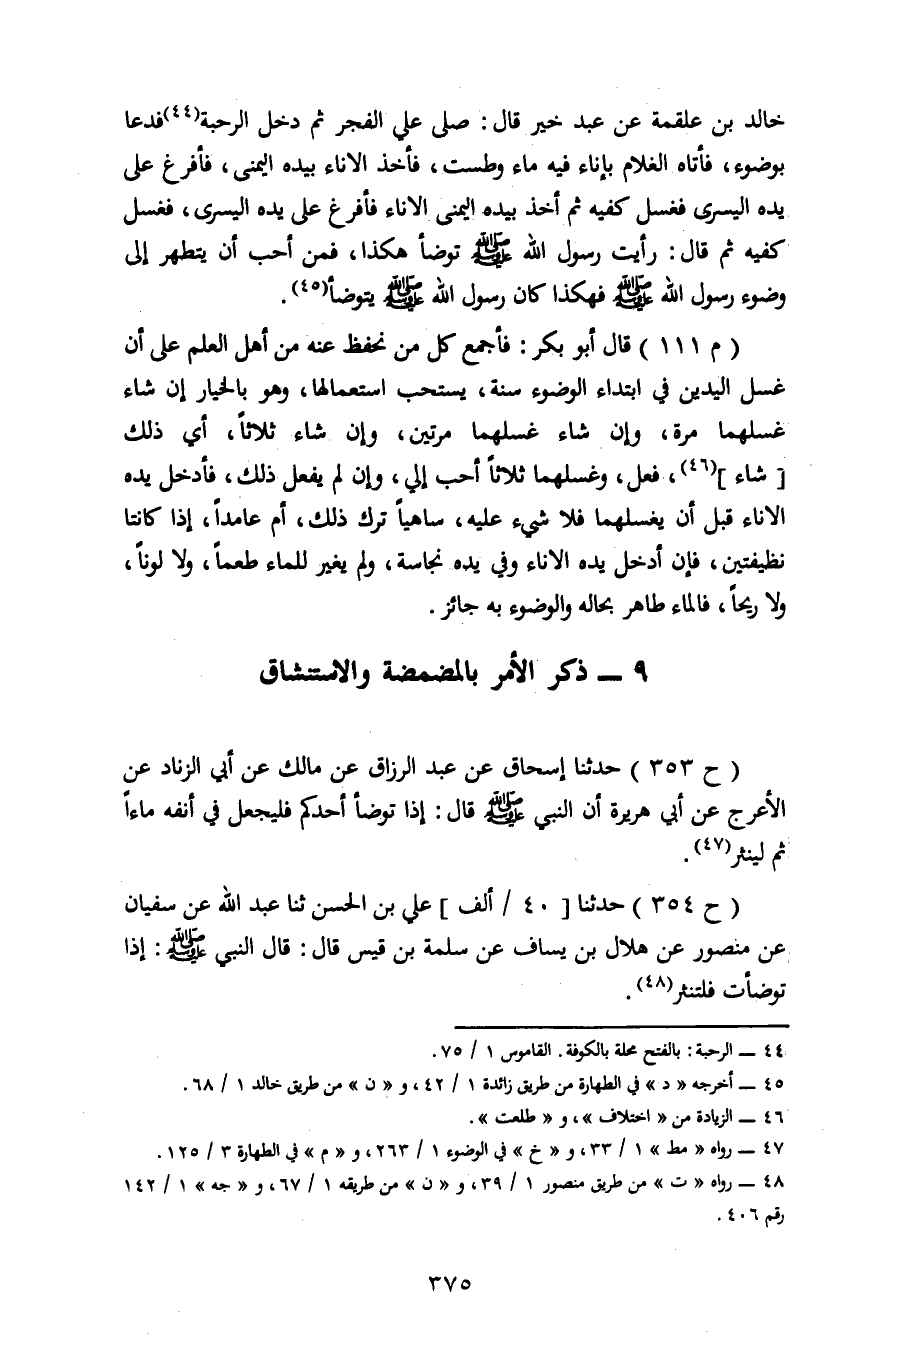 خالد بن علقمة عن عبد خير قال : صلى علي الفجر ثم دخل الرحبة(٤٤)فدعا
بوضوء ، فأتاه الغلام بإناء فيه ماء وطست ، فأخذ الاناء بيده اليمنى ، فأفرغ على
يده اليسرى فغسل كفيه ثم أخذ بيده اليمنى الاناء فأفرغ على يده اليسرى ، فغسل
كفيه ثم قال : رأيت رسول الله ﷺ توضأ هكذا ، فمن أحب أن يتطهر إلى
وضوء رسول الله ﷺ فهكذا كان رسول الله ﷺ يتوضأ(٤٥) .
( م ١١١ ) قال أبو بكر : فأجمع كل من نحفظ عنه من أهل العلم على أن
غسل اليدين في ابتداء الوضوء سنة ، يستحب استعمالها ، وهو بالخيار إن شاء
غسلهما مرة ، وإن شاء غسلهما مرتين ، وإن شاء ثلاثاً ، أي ذلك
[ شاء ](٤٦) ، فعل ، وغسلهما ثلاثاً أحب إلي ، وإن لم يفعل ذلك ، فأدخل يده
الاناء قبل أن يغسلهما فلا شيء عليه ، ساهياً ترك ذلك ، أم عامداً ، إذا كانتا
نظيفتين ، فإن أدخل يده الاناء وفي يده نجاسة ، ولم يغير للماء طعماً ، ولا لوناً ،
ولا ريحاً ، فالماء طاهر بحاله والوضوء به جائز .
٩ ــ ذكر الأمر بالمضمضة والاستنشاق
( ح ٣٥٣ ) حدثنا إسحاق عن عبد الرزاق عن مالك عن أبي الزناد عن
الأعرج عن أبي هريرة أن النبي ﷺ قال : إذا توضأ أحدكم فليجعل في أنفه ماءاً
ثم لينثر(٤٧) .
( ح ٣٥٤ ) حدثنا [ ٤٠ / ألف ] علي بن الحسن ثنا عبد الله عن سفيان
عن منصور عن هلال بن يساف عن سلمة بن قيس قال : قال النبي ﷺ : إذا
توضأت فلتنثر(٤٨) .
٤٤ ــ الرحبة : بالفتح محلة بالكوفة . القاموس ١ / ٧٥ .
٤٥ ــ أخرجه « د » في الطهارة من طريق زائدة ١ / ٤٢ ، و « ن » من طريق خالد ١ / ٦٨ .
٤٦ ــ الزيادة من « اختلاف » ، و « طلعت » .
٤٧ ــ رواه « مط » ١ / ٣٣ ، و « خ » في الوضوء ١ / ٢٦٣ ، و « م » في الطهارة ٣ / ١٢٥ .
٤٨ ــ رواه « ت » من طريق منصور ١ / ٣٩ ، و « ن » من طريقه ١ / ٦٧ ، و « جه » ١ / ١٤٢
رقم ٤٠٦ .
٣٧٥